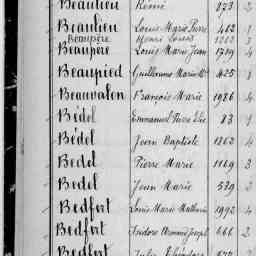 Beaulieu Rémi 873
Beaulieu Louis Marie Pierre 462
Beaupère Henri Louis
Beaupère Louis Marie Jean 1719
Beaupied Guillaume Marie 425
Beauvalon François Marie 1986 4
Bédel Emmanuel Pierre 83
Bédel Jean Baptiste 1262 4
Bedel Pierre Marie 1169 3
Bedel Jean Marie 539 2
Bedfert Louis Marie Mathurin 1992 4
Bedfert Isidore Armand Joseph 666 2
Bedfert Jules